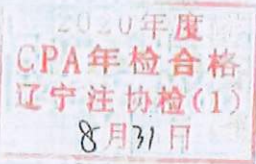 2020年度
CPA年检合格
辽宁注协检(1)
8月31日